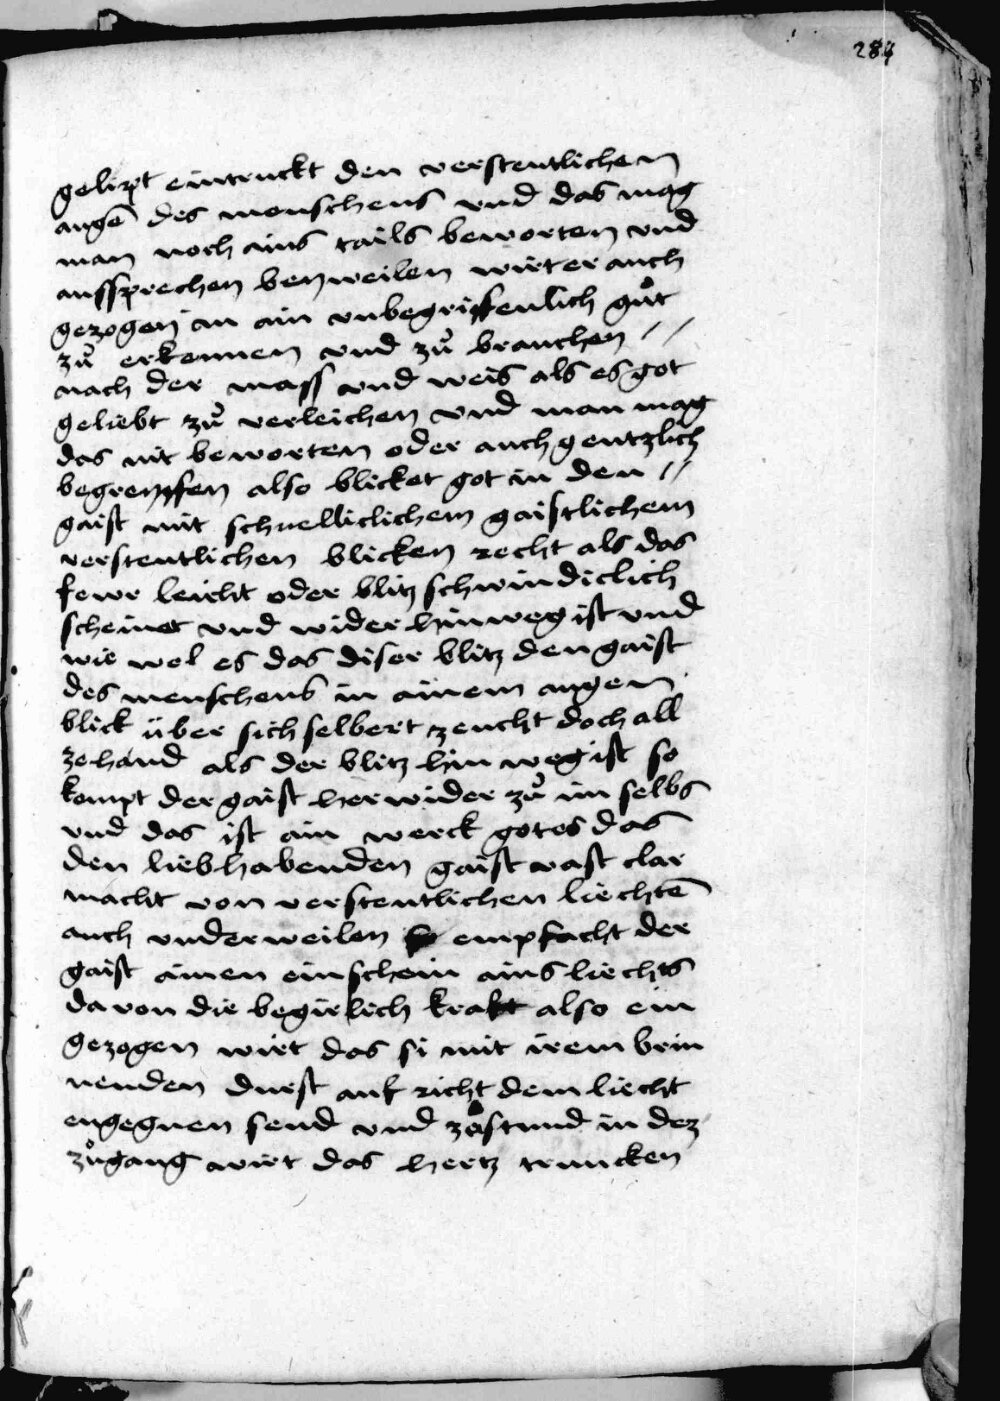 287
gelipt eintruckt den verstentlichen
augē des menschens vnd das mag
man noch ains tails beworten vnd
aussprechen beyweilen wirt er auch
gezogen an ain vnbegriffenlich gůt
zů erkennen vnd zů brauchen //
nach der mass vnd weis als es got
geliebt zů verleichen vnd man mag
das nit beworten oder auch gentzlich
begreyffen also blicket got in den //
gaist mit schnelliclichem gaistlichem
verstentlichen blicken recht als das
fewr leicht oder blitz schwindiclich
scheinet vnd wider hinweg ist vnd
wie wol es das diser blitz den gaist
des menschens in ainem augen
blick über sich selbert zeucht doch all
zehand als der blitz hin weg ist so
kompt der gaist herwider zů im selbs
vnd das ist ain werck gotes das
den liebhabenden gaist vast clar
macht von verstentlichen liechtē
auch vnderweilen empfacht der
gaist ainen einschein ains liechts
da von die begirlich kraft also ein
gezogen wirt das si mit irem brin
nenden durst auf richt dem liecht
engegnen send vnd zůstund in dez
zůgang wirt das hertz truncken